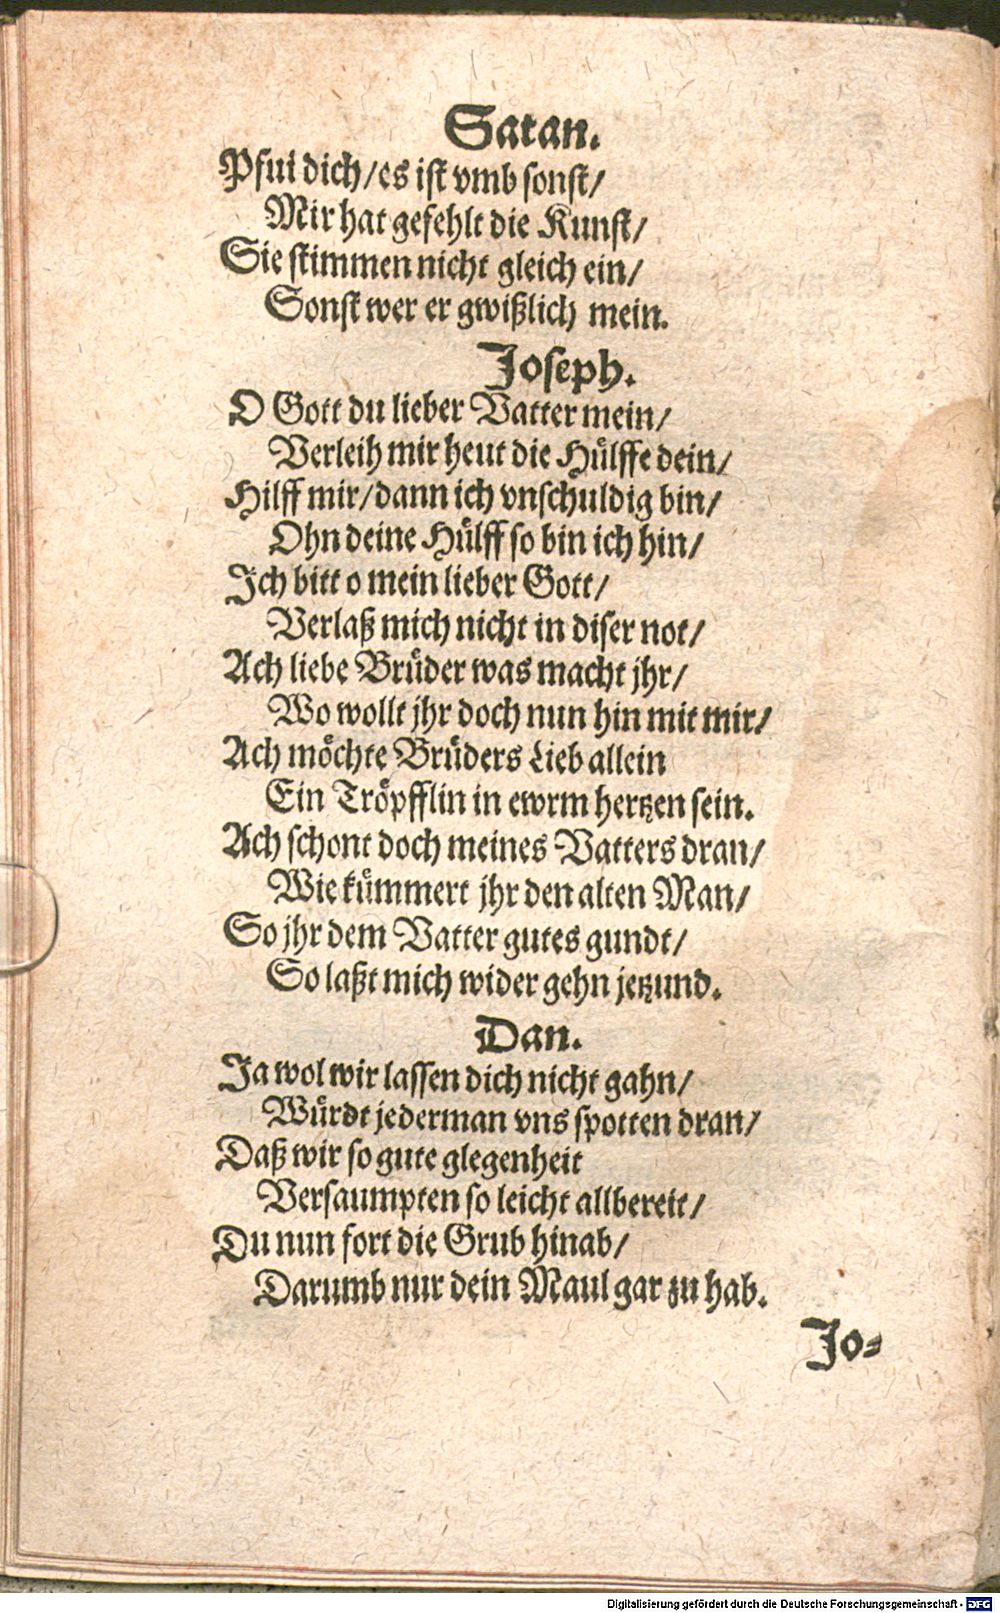 Satan.
Pfui dich/es ist vmb sonst/
Mir hat gefehlt die Kunst/
Sie stimmen nicht gleich ein/
Sonst wer er gwißlich mein.
Joseph.
O Gott du lieber Vatter mein/
Verleih mir heut die Hülffe dein/
Hilff mir/dann ich vnschuldig bin/
Ohn deine Hülff so bin ich hin/
Ich bitt o mein lieber Gott/
Verlaß mich nicht in diser not/
Ach liebe Brüder was macht jhr/
Wo wollt jhr doch nun hin mit mir/
Ach möchte Brüders Lieb allein
Ein Tröpfflin in ewrm hertzen sein.
Ach schont doch meines Vatters dran/
Wie kümmert jhr den alten Man/
So jhr dem Vatter gutes gundt/
So laßt mich wider gehn jetzund.
Dan.
Ja wol wir lassen dich nicht gahn/
Würdt jederman vns spotten dran/
Daß wir so gute glegenheit
Versaumpten so leicht allbereit/
Du nun fort die Grub hinab/
Darumb nur dein Maul gar zu hab.
Jo=
Digitalisierung gefördert durch die Deutsche Forschungsgemeinschaft - DFG